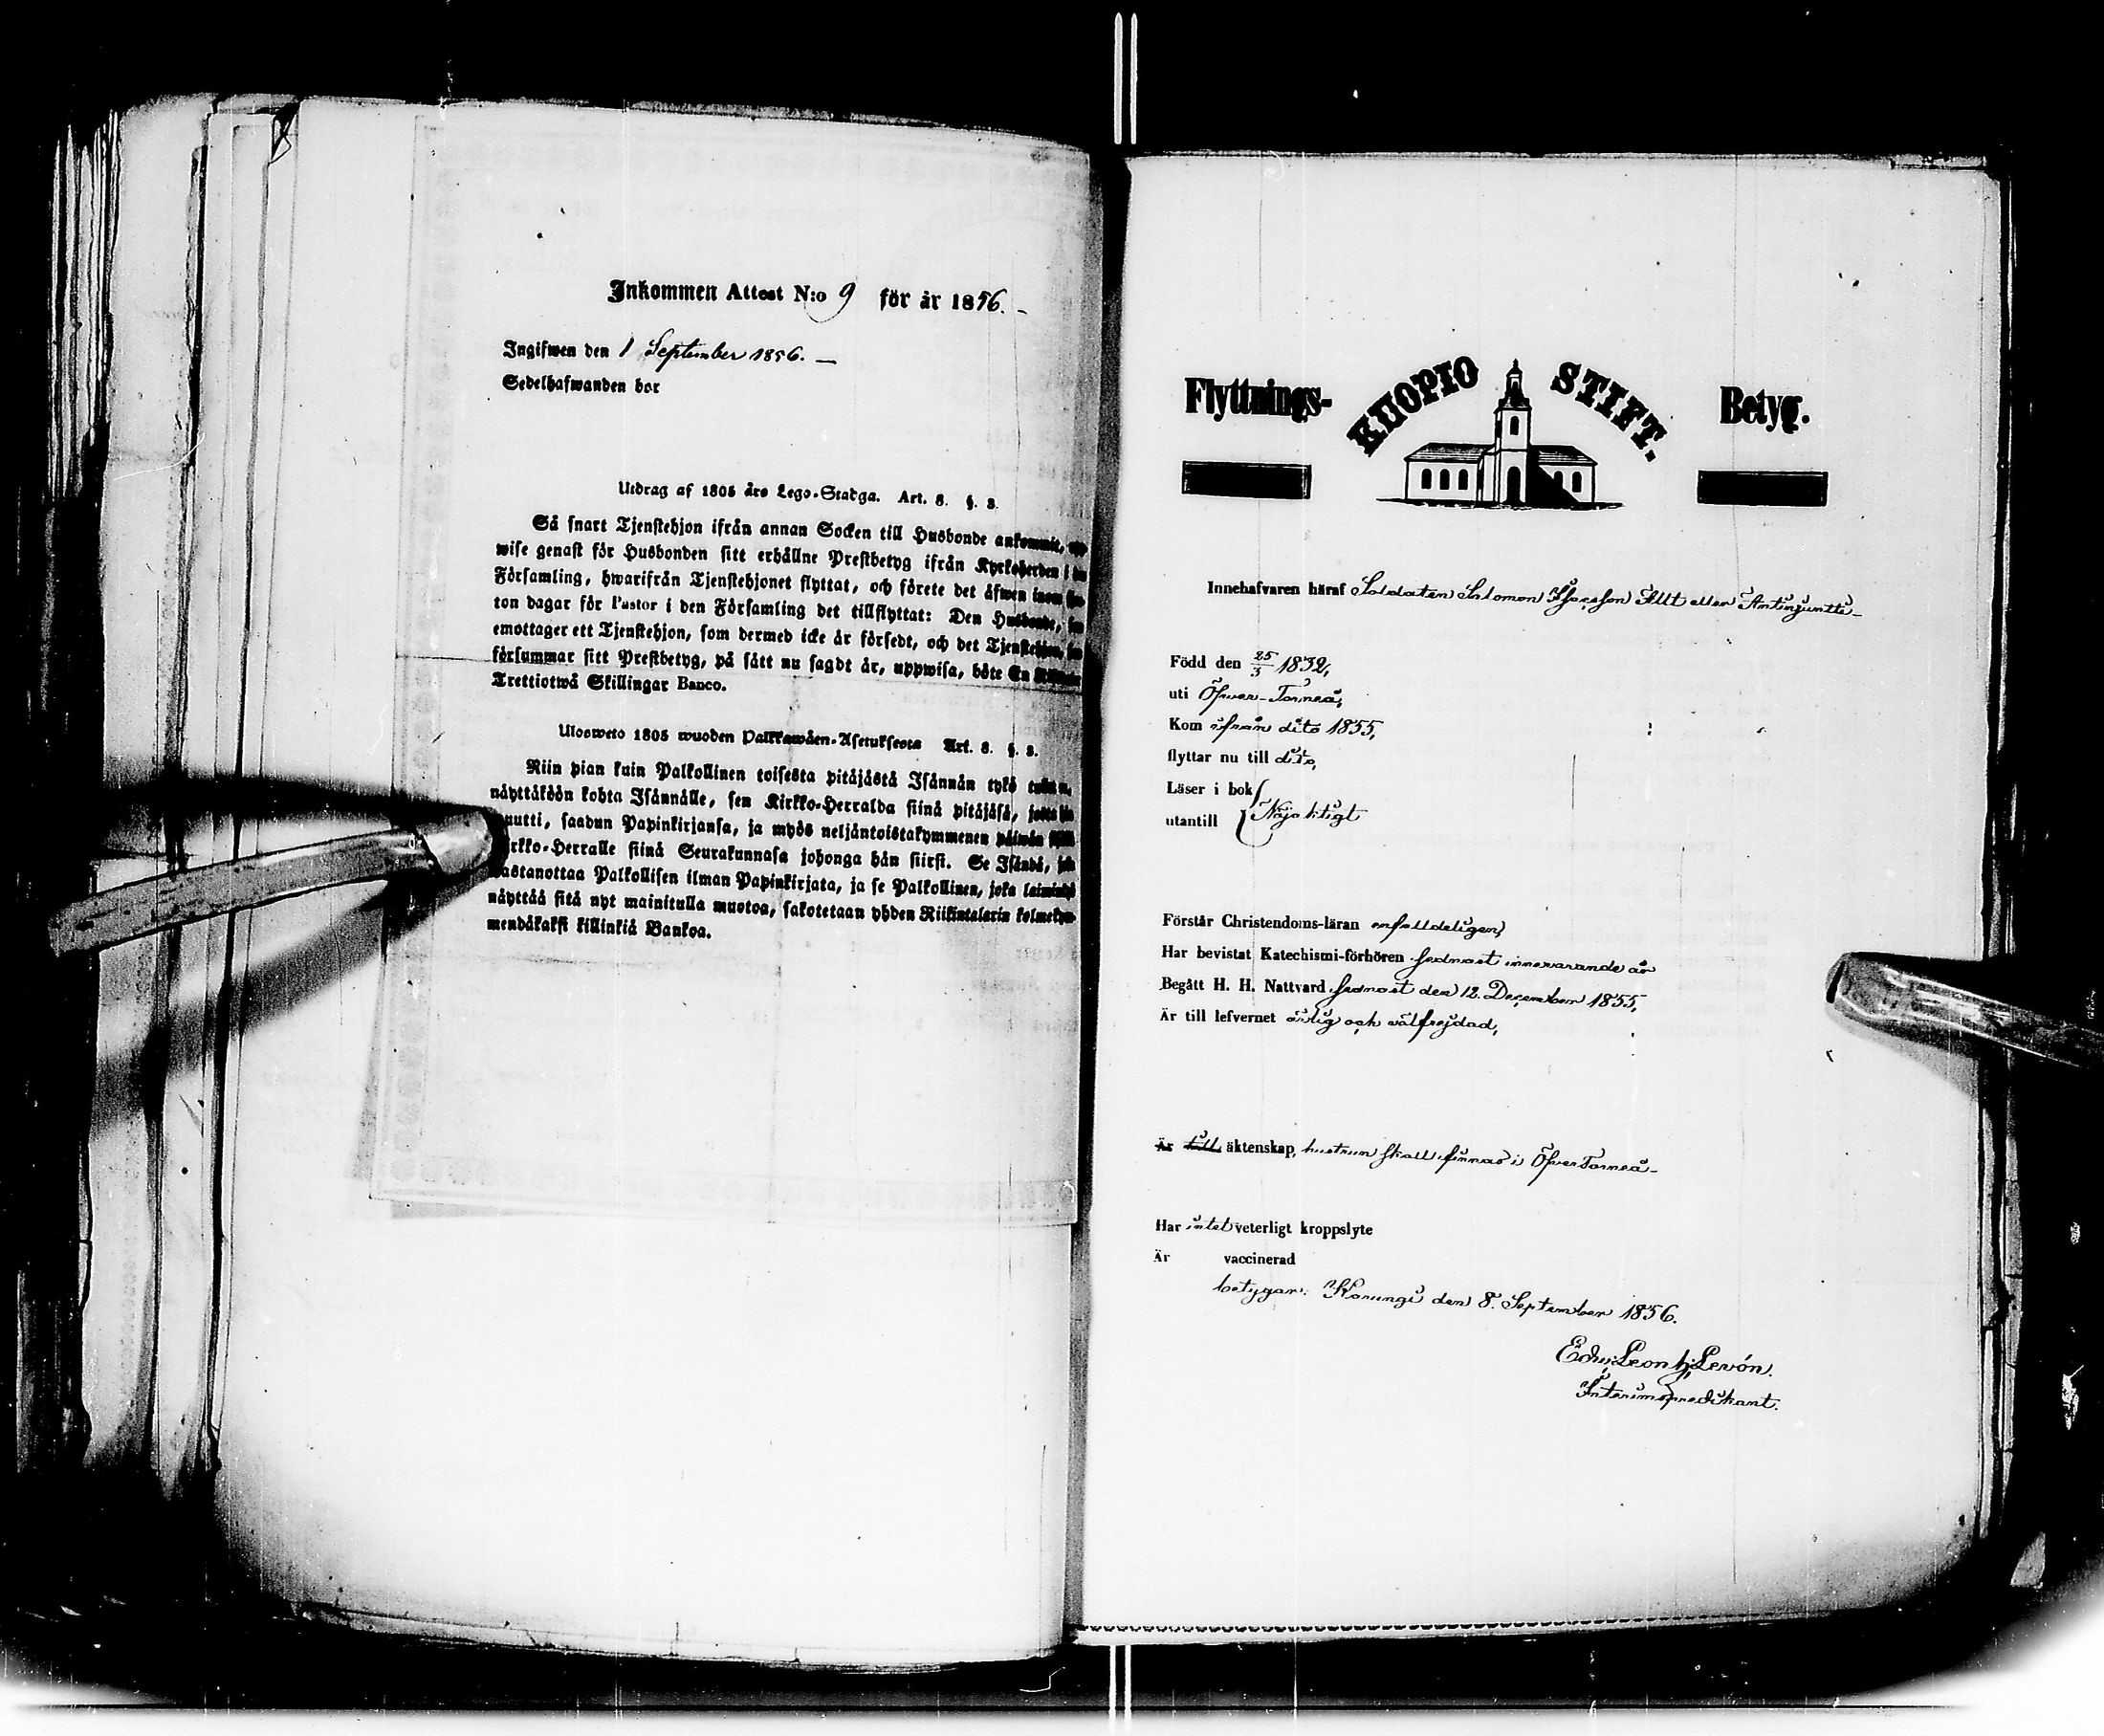 Inkommen Attest N:o 9 för år 1856. -
Ingifwen den 1 September 1856. —
Sedelhafwanden bor
Utdrag af 1805 års Lego-Stadga. Art. 8. §. 3.
Så snart Tjenstehjon ifrån annan Socken till Husbonde ankommit,
wise genast för Husbonden sitt erhållne Prestbetyg ifrån Kyrkoherden i
Församling, hwarifrån Tjenstehjonet flyttat, och förete det äfwen inom
ton dagar för Pastor i den Församling det tillflyttat: Den Husbonde,
emottager ett Tjenstehjon, som dermed icke är försedt, och det Tjenstehjon,
försummar sitt Prestbetyg, på sätt nu sagdt är, uppwisa, böte En
Trettiotwå Skillingar Banco.
Ulosweto 1805 wuoden Palkkawäen-Asetuksesta Art. 8. §. 3.
Niin pian kuin Palkollinen toisesta pitäjästä Isännän tykö
näyttäköön kohta Isännälle, sen Kirkko-Herralda siinä pitäjäsä,
muutti, saadun Papinkirjansa, ja myös neljäntoistakymmenen päiwän
Kirkko-Herralle siinä Seurakunnasa johonga hän siirsi. Se Isändä,
wastanottaa Palkollisen ilman Papinkirjata, ja se Palkollinen, joka
näyttää sitä nyt mainitulla muotoa, sakotetaan yhden Riikintalarin kolmekym-
mendäkaksi killinkiä Bankoa.
Flyttnings- KUOPIO STIFT. Betyg.
Innehafvaren häraf Soldaten Salomon Allt eller Antinjuntti
Född den 25/3 1832,
uti Öfver-Torneå,
Kom ifrån dito 1855,
flyttar nu till dito,
Läser i bok
utantill Nöjaktigt
Förstår Christendoms-läran enfalldeligen,
Har bevistat Katechismi-förhören sednast innevarande år
Begått H. H. Nattvard sednast den 12. December 1855,
Är till lefvernet ärlig och välfrejdad,
Är till äktenskap, hustrun skall finnas i ÖfverTorneå
Har intet veterligt kroppslyte
Är vaccinerad
betygar: Karungi den 8. September 1856.
Leon Levón.
Interimspredikant.